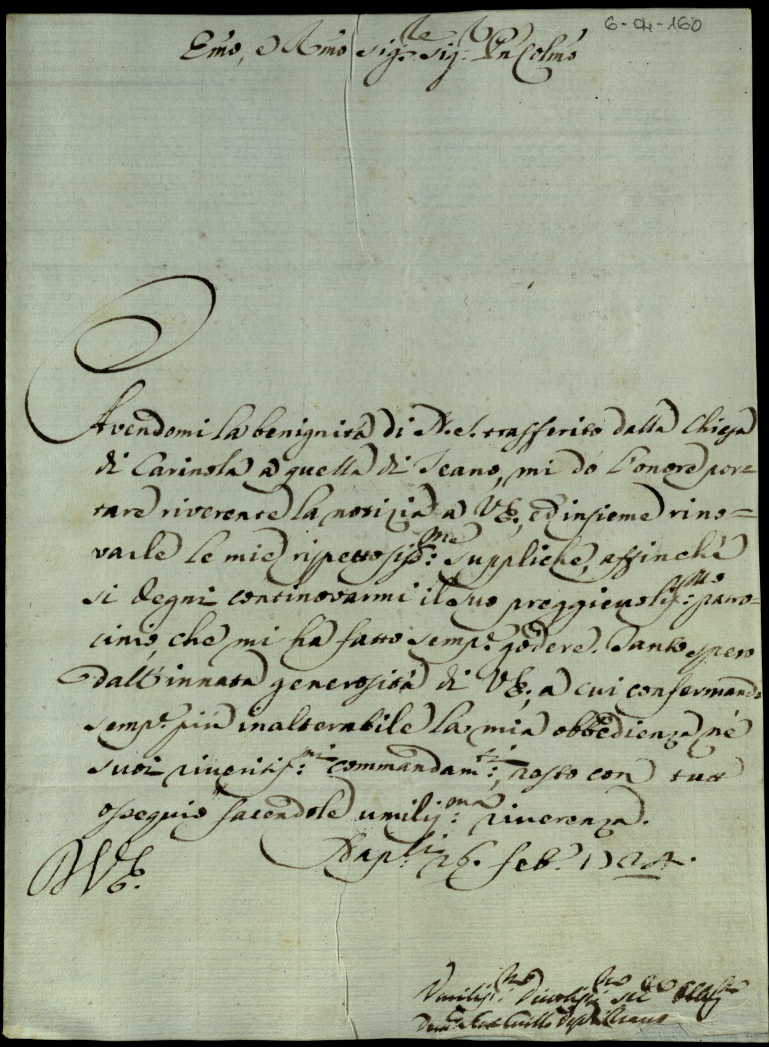 6-04-160
Emo, e Rmo Sig.re Sig.r Pn Colmo
Avendomi la benignità di N.S. trasferito dalla Chiesa
di Carinola a quella di Teano, mi dò l'onore por=
tare riverente la notizia a VE; ed insieme rino=
varle le mie rispettosiss:me suppliche, affinchè
si degni continovarmi il suo preggievoliss:mo patro-
cinio, che mi ha fatto semp.e godere. Tanto spero
dall'innata generosità di VE; a cui confermando
semp.e più inalterabile la mia obbedienza né
suoi riveritiss:mi commandam:ti, resto con tutt
ossequio facendole umiliss:ma riverenza.
Nap:li 26. Feb.o 1724.
DVE.
Umiliss.mo Divotiss.mo Ser.